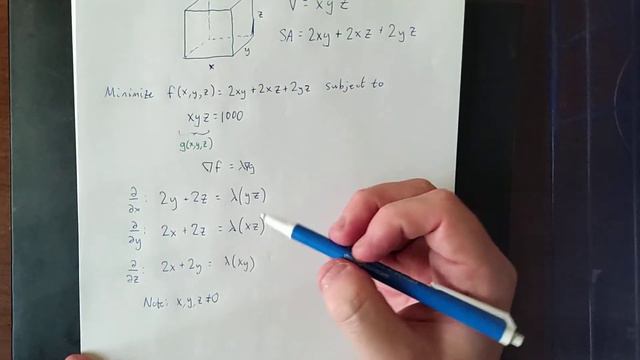 V = xyz
z
SA = 2xy + 2xz + 2yz
y
x
Minimize f(x,y,z) = 2xy + 2xz + 2yz subject to
xyz = 1000
g(x,y,z)
∇f = λ∇g
∂/∂x: 2y + 2z = λ(yz)
∂/∂y: 2x + 2z = λ(xz)
∂/∂z: 2x + 2y = λ(xy)
Note: x,y,z ≠ 0